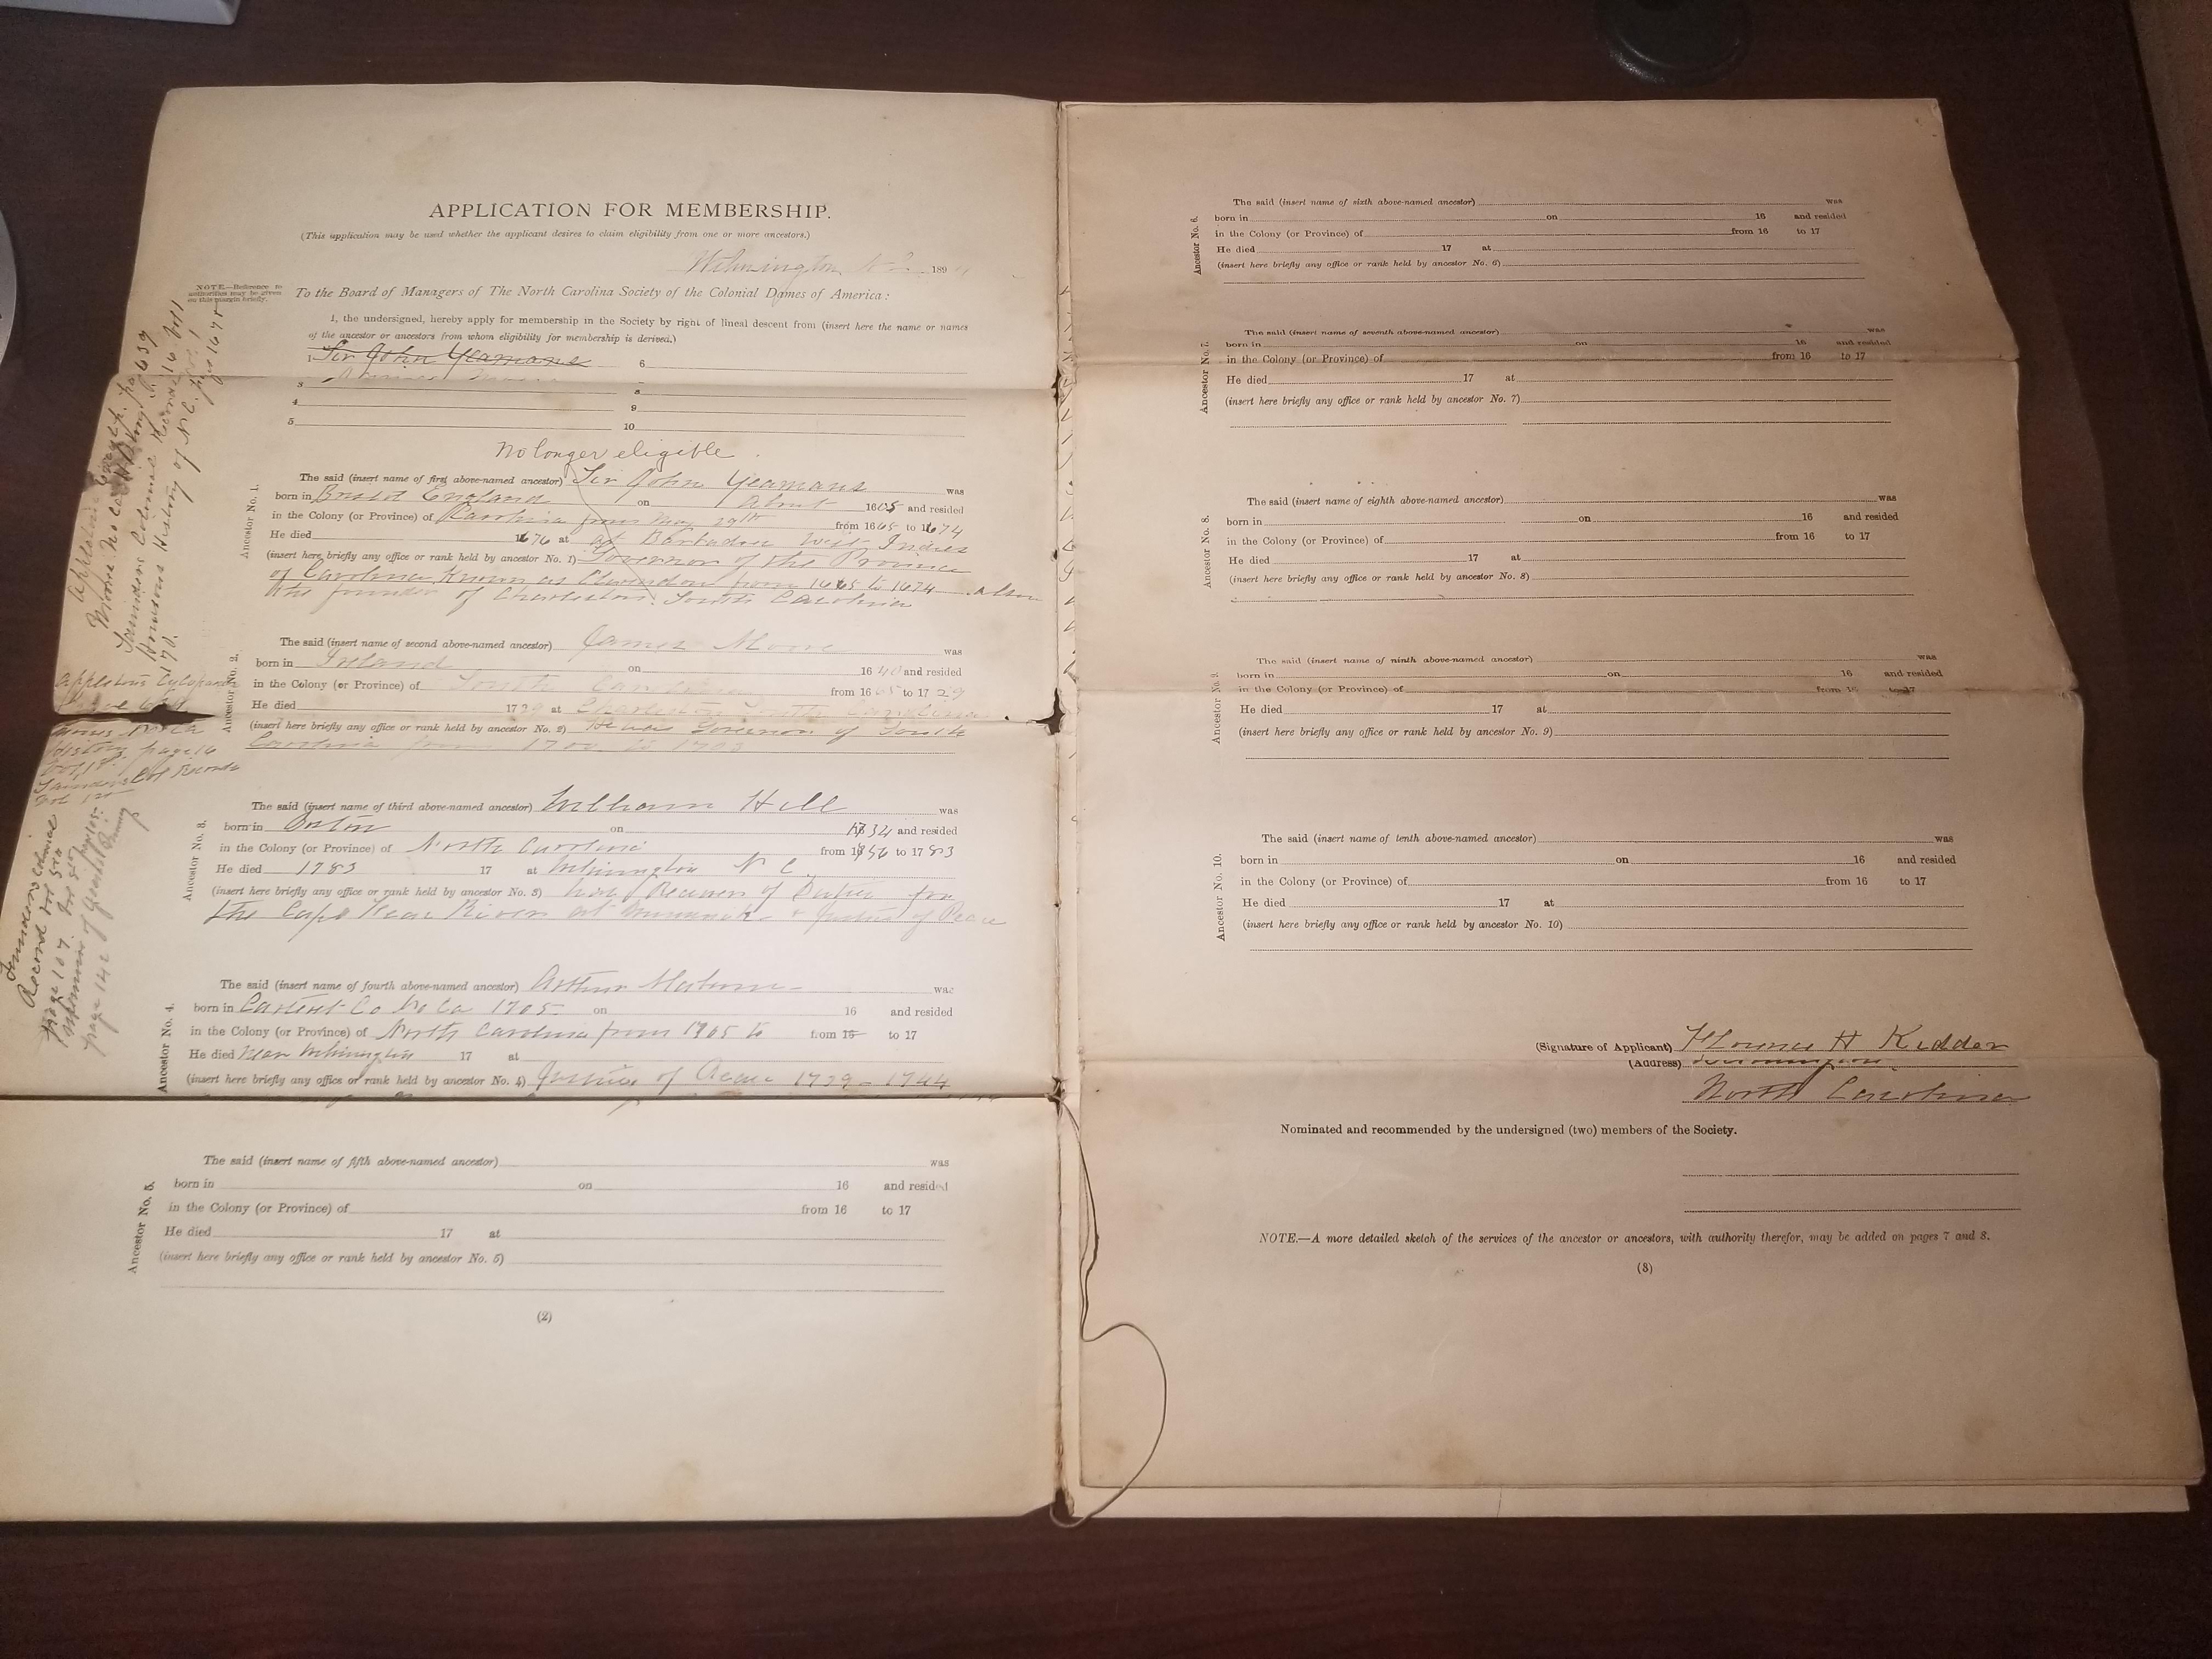 APPLICATION FOR MEMBERSHIP.
(This application may be used whether the applicant desires to claim eligibility from one or more ancestors.)
Wilmington 189
NOTE.—Reference to
authorities may be given
on this margin briefly.
To the Board of Managers of The North Carolina Society of the Colonial Dames of America:
I, the undersigned, hereby apply for membership in the Society by right of lineal descent from (insert here the name or names
of the ancestor or ancestors from whom eligibility for membership is derived.)
1 Sir John Yeamans 6
3 8
4 9
5 10
No longer eligible
Ancestor No. 1.
The said (insert name of first above-named ancestor) Sir John Yeamans was
born in Bristol England on About 1605 and resided
in the Colony (or Province) of Carolina from May 29th from 1665 to 1674
He died 1676 at at Barbadoes West Indies
(insert here briefly any office or rank held by ancestor No. 1) Governor of the Province
of Carolina Known as Clarendon from 1665 to 1674 also
the founder of Charleston South Carolina
Ancestor No. 2.
The said (insert name of second above-named ancestor) James Moore was
born in Ireland on 1640 and resided
in the Colony (or Province) of South Carolina from 1665 to 1729
He died 1729 at Charleston South Carolina
(insert here briefly any office or rank held by ancestor No. 2) He was Governor of South
Carolina from 1700 to 1703
Ancestor No. 3.
The said (insert name of third above-named ancestor) William Hill was
born in Boston on 1734 and resided
in the Colony (or Province) of North Carolina from 1756 to 1783
He died 1783 17 at Wilmington N C
(insert here briefly any office or rank held by ancestor No. 3) Receiver of Duties for
the Cape Fear River at Brunswick & Justice of Peace
Ancestor No. 4.
The said (insert name of fourth above-named ancestor) Arthur was
born in Carteret Co No Ca 1705 on 16 and resided
in the Colony (or Province) of North Carolina from 1705 to from 16 to 17
He died Near Wilmington 17 at
(insert here briefly any office or rank held by ancestor No. 4) Justice of Peace 1739 - 1744
Ancestor No. 5.
The said (insert name of fifth above-named ancestor) was
born in on 16 and resided
in the Colony (or Province) of from 16 to 17
He died 17 at
(insert here briefly any office or rank held by ancestor No. 5)
(2)
page 639
Saunders Colonial Records
History of N.C.
170.
Appletons Cyclopaedia
History page 16
Saunders Col Records
Saunders Colonial
Record Vol 5th
page 107
page 142
Ancestor No. 6.
The said (insert name of sixth above-named ancestor) was
born in on 16 and resided
in the Colony (or Province) of from 16 to 17
He died 17 at
(insert here briefly any office or rank held by ancestor No. 6)
Ancestor No. 7.
The said (insert name of seventh above-named ancestor) was
born in on 16 and resided
in the Colony (or Province) of from 16 to 17
He died 17 at
(insert here briefly any office or rank held by ancestor No. 7)
Ancestor No. 8.
The said (insert name of eighth above-named ancestor) was
born in on 16 and resided
in the Colony (or Province) of from 16 to 17
He died 17 at
(insert here briefly any office or rank held by ancestor No. 8)
Ancestor No. 9.
The said (insert name of ninth above-named ancestor) was
born in on 16 and resided
in the Colony (or Province) of from 16 to 17
He died 17 at
(insert here briefly any office or rank held by ancestor No. 9)
Ancestor No. 10.
The said (insert name of tenth above-named ancestor) was
born in on 16 and resided
in the Colony (or Province) of from 16 to 17
He died 17 at
(insert here briefly any office or rank held by ancestor No. 10)
(Signature of Applicant) Florence H Kidder
(Address)
North Carolina
Nominated and recommended by the undersigned (two) members of the Society.
NOTE.—A more detailed sketch of the services of the ancestor or ancestors, with authority therefor, may be added on pages 7 and 8.
(3)